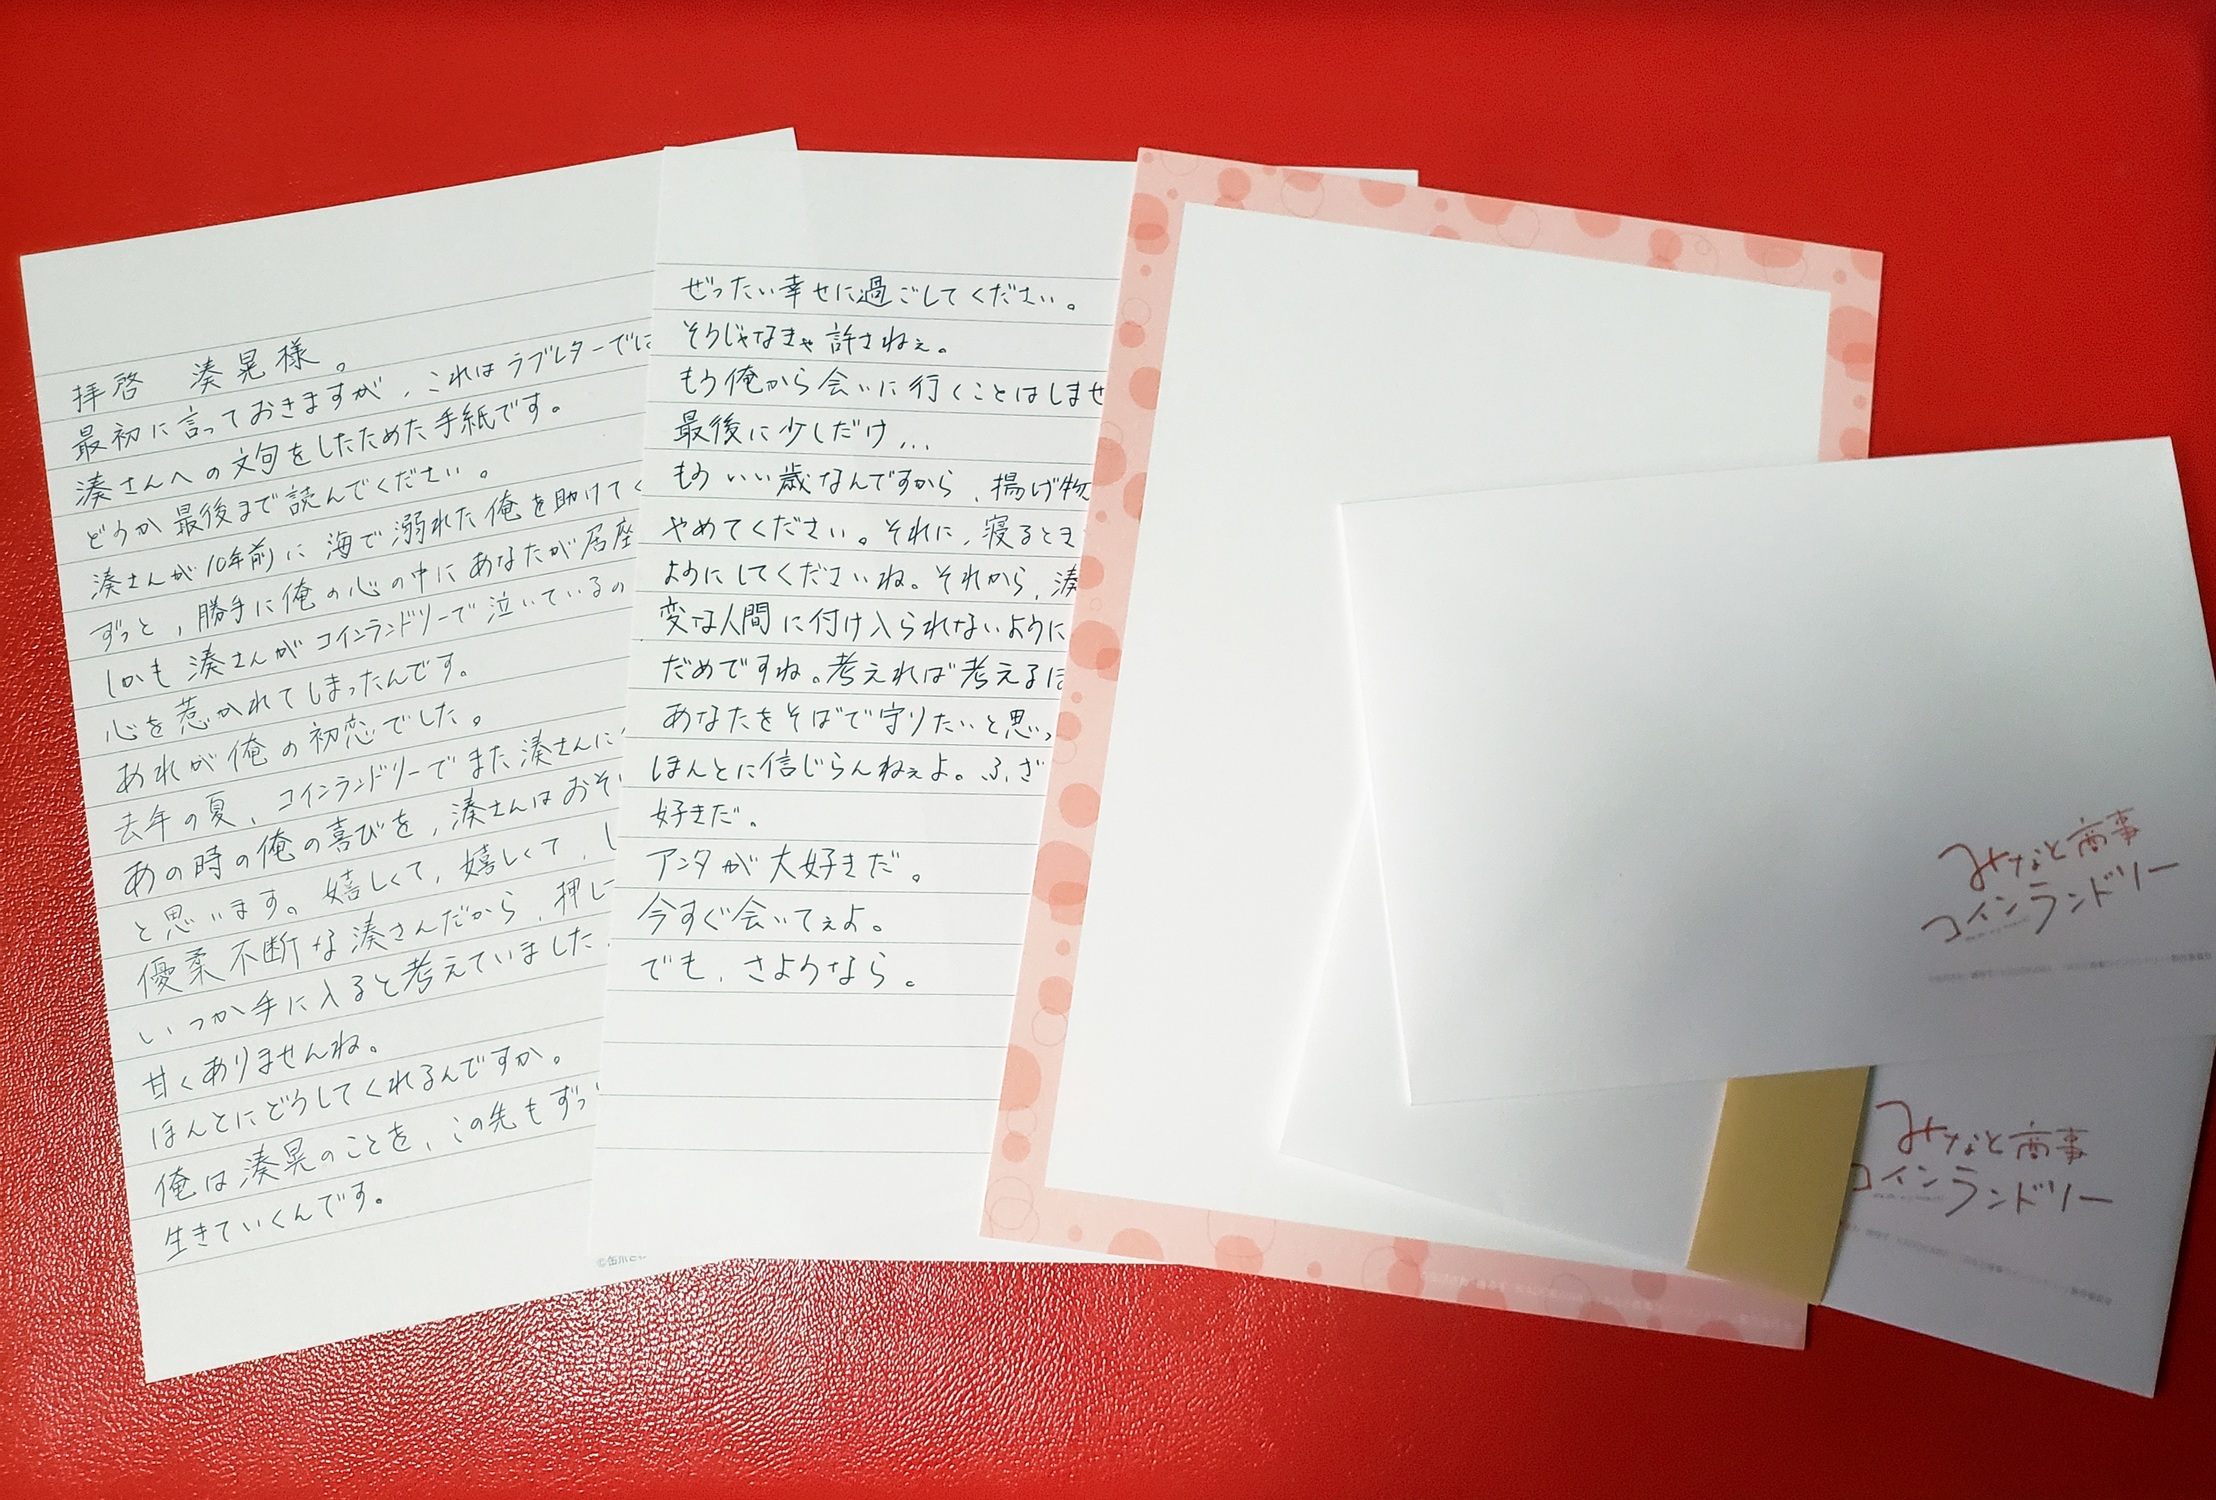 拝啓 湊晃様。
最初に言っておきますが、これはラブレターでは
湊さんへの文句をしたためた手紙です。
どうか最後まで読んでください。
湊さんが10年前に海で溺れた俺を助けてく
ずっと、勝手に俺の心の中にあなたが居座
しかも湊さんがコインランドリーで泣いているの
心を惹かれてしまったんです。
あれが俺の初恋でした。
去年の夏、コインランドリーでまた湊さんに
あの時の俺の喜びを、湊さんはおそ
と思います。嬉しくて、嬉しくて、し
優柔不断な湊さんだから、押し
いつか手に入ると考えていました
甘くありませんね。
ほんとにどうしてくれるんですか。
俺は湊晃のことを、この先もずっ
生きていくんです。
ぜったい幸せに過ごしてください。
そうじゃなきゃ許さねぇ。
もう俺から会いに行くことはしませ
最後に少しだけ...
もういい歳なんですから、揚げ物
やめてください。それに、寝るとき
ようにしてくださいね。それから、湊
変な人間に付け入られないように
だめですね。考えれば考えるほ
あなたをそばで守りたいと思っ
ほんとに信じらんねぇよ。ふざ
好きだ。
アンタが大好きだ。
今すぐ会いてぇよ。
でも、さようなら。
みなと商事
コインランドリー
みなと商事
コインランドリー